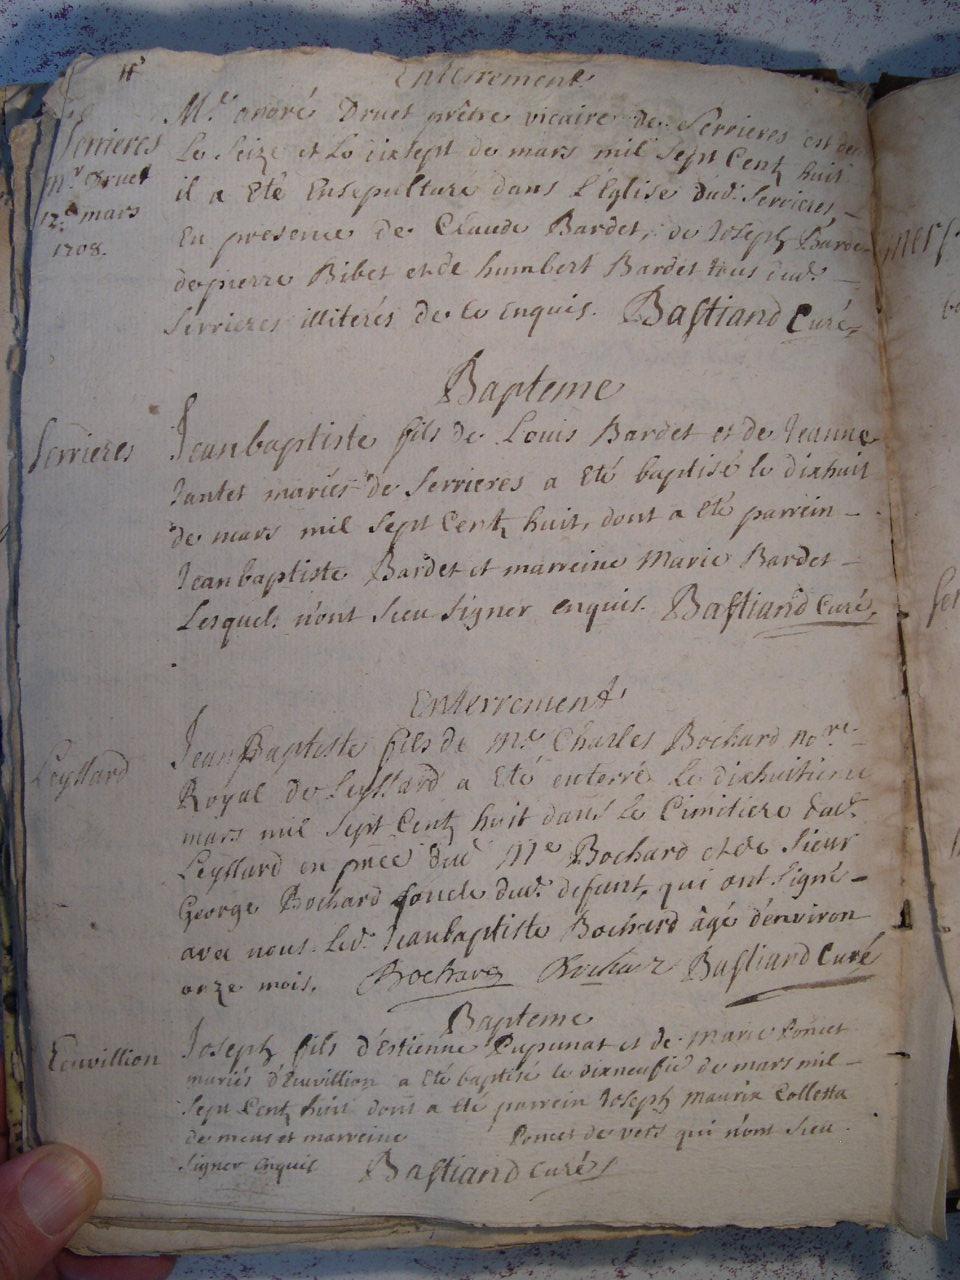 Enterrement
Mre andré Druet prêtre vicaire de Serrieres est
Le Seize et Le dixsept de mars mil Sept Centz huit
il a Eté Ensepulturé dans L'Eglise dud. Serrieres,
En presence de Claude Bardet, de Joseph Barde
de pierre Bibet et de humbert Bardet tous dud.
Serrieres illiterés de ce enquis. Bastiand Curé
Serrieres
Mr Druet
mars
1708.
Bapteme
Serrieres
Jeanbaptiste fils de Louis Bardet et de Jeanne
Jantet mariés de Serrieres a Eté baptisé le dixhuit
de mars mil Sept Centz huit, dont a Eté parrein
Jeanbaptiste Bardet et marreine Marie Bardet
Lesquels n'ont Sceu Signer enquis. Bastiand Curé,
Enterrement
Leyssard
Jean Baptiste fils de Me Charles Bochard nore
Royal de Leyssard a Eté enterré Le dixhuitieme
mars mil Sept Centz huit dans le Cimitiere dud.
Leyssard en pnce dud Me Bochard et de Sieur
George Bochard l'oncle dud. defunt, qui ont Signé
avec nous. Led. Jeanbaptiste Bochard âgé d'environ
onze mois. Bochard Bastiand Curé
Bapteme
Eeuvillion
Joseph fils d'Estienne Pupunat et de Marie Poncet
mariés d'Euvillion a Eté baptisé le dixneufie de mars mil
Sept Centz huit dont a Eté parrein Joseph Maurix Colletta
de mens et marreine Poncet de vers qui n'ont Sceu
Signer enquis Bastiand Curé